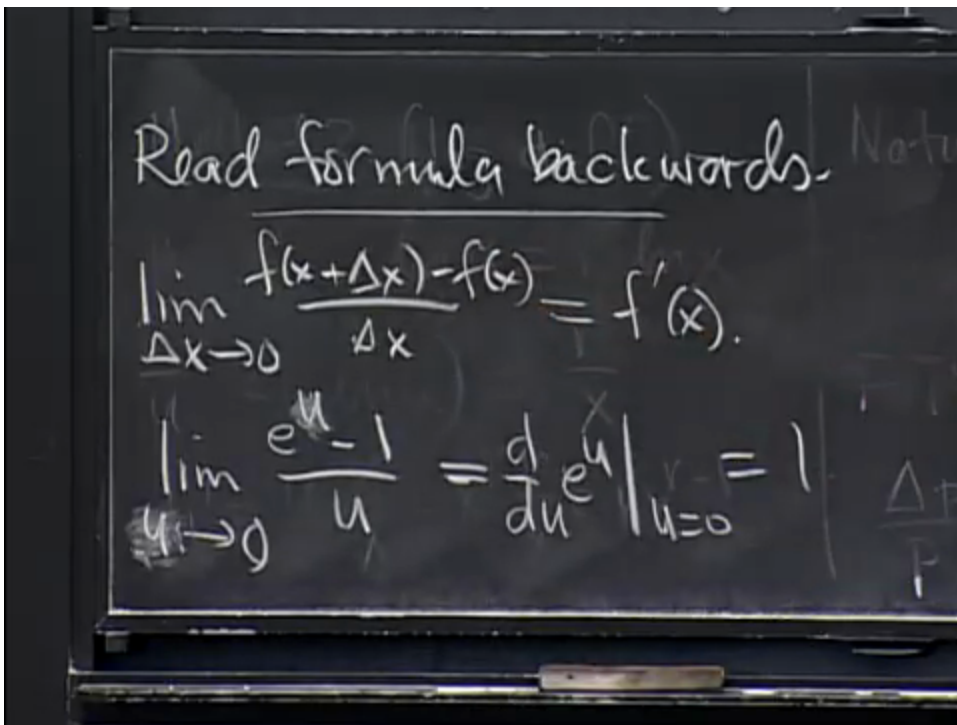 Read formula backwards.
lim Δx→0 f(x+Δx)-f(x) / Δx = f'(x).
lim u→0 e^u - 1 / u = d/du e^u |u=0 = 1